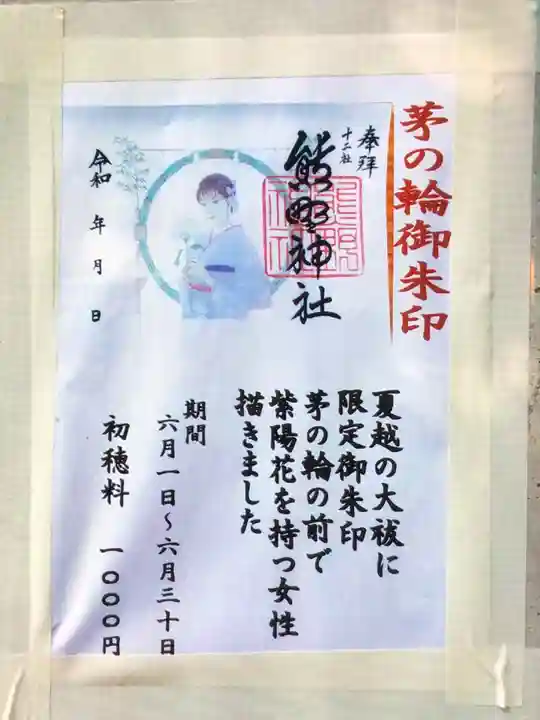 茅の輪御朱印
奉拝
十二社
熊野神社
令和 年 月 日
夏越の大祓に
限定御朱印
茅の輪の前で
紫陽花を持つ女性
描きました
期間
六月一日～六月三十日
初穂料 一〇〇〇円